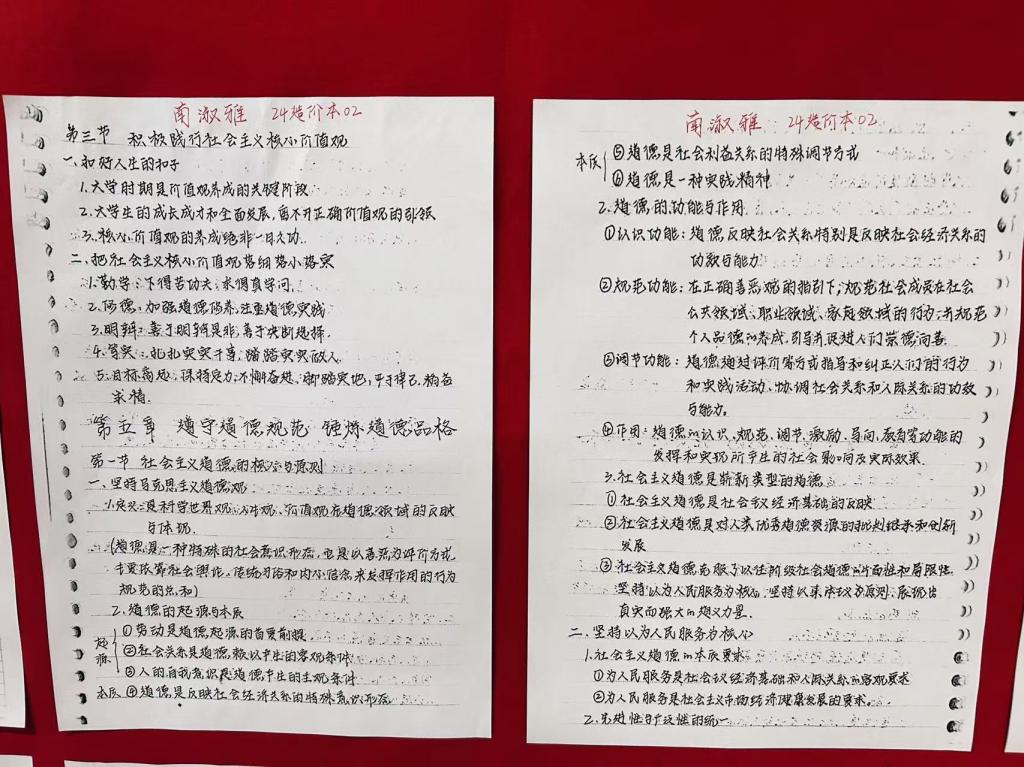 南淑雅 24造价本02
第三节 积极践行社会主义核心价值观
一、扣好人生的扣子
1.大学时期是价值观养成的关键阶段
2.大学生的成长成才和全面发展,离不开正确价值观的引领
3.核心价值观的养成绝非一日之功.
二、把社会主义核心价值观落细落小落实
1.勤学:下得苦功夫,求得真学问.
2.修德:加强道德修养,注重道德实践
3.明辨:善于明辨是非,善于决断选择.
4.笃实:扎扎实实干事,踏踏实实做人.
5.目标高远,保持定力,不懈奋进,脚踏实地,严于律己,精益
求精.
第五章 遵守道德规范 锤炼道德品格
第一节 社会主义道德的核心与原则
一、坚持马克思主义道德观
1.定义:是科学世界观、人生观、价值观在道德领域的反映
与体现.
(道德是一种特殊的社会意识形态,也是以善恶为评价方式,
主要依靠社会舆论、传统习俗和内心信念来发挥作用的行为
规范的总和)
2.道德的起源与本质
起源
①劳动是道德起源的首要前提
②社会关系是道德赖以产生的客观条件
③人的自我意识是道德产生的主观条件
本质 ④道德是反映社会经济关系的特殊意识形态
南淑雅 24造价本02
本质
⑤道德是社会利益关系的特殊调节方式
⑥道德是一种实践精神
2.道德的功能与作用
①认识功能:道德反映社会关系特别是反映社会经济关系的
功效与能力
②规范功能:在正确善恶观的指引下,规范社会成员在社会
公共领域、职业领域、家庭领域的行为,并规范
个人品德的养成,引导并促进人们崇德向善.
③调节功能:道德通过评价等方式指导和纠正人们的行为
和实践活动、协调社会关系和人际关系的功效
与能力。
④作用:道德的认识、规范、调节、激励、导向、教育等功能的
发挥和实现所产生的社会影响及实际效果.
3.社会主义道德是崭新类型的道德
①社会主义道德是社会主义经济基础的反映
②社会主义道德是对人类优秀道德资源的批判继承和创新
发展
③社会主义道德克服了以往阶级社会道德的片面性和局限性
坚持以为人民服务为核心,坚持以集体主义为原则,展现出
真实而强大的道义力量.
二、坚持以为人民服务为核心
1.社会主义道德的本质要求
①为人民服务是社会主义经济基础和人际关系的客观要求
②为人民服务是社会主义市场经济健康发展的要求。
2.先进性与广泛性的统一